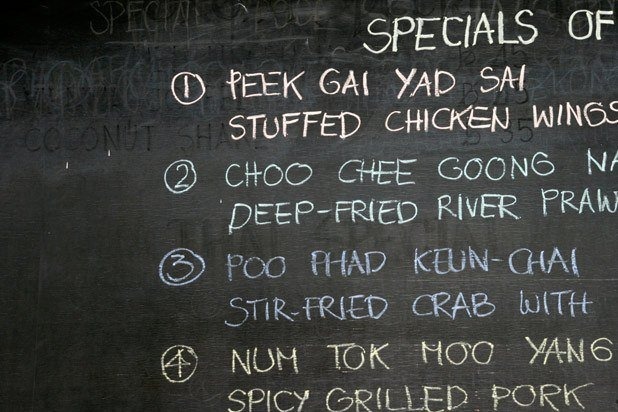 SPECIALS OF
① PEEK GAI YAD SAI
STUFFED CHICKEN WINGS
② CHOO CHEE GOONG NA
DEEP-FRIED RIVER PRAW
③ POO PHAD KEUN-CHAI
STIR-FRIED CRAB WITH
④ NUM TOK MOO YANG
SPICY GRILLED PORK
COCONUT